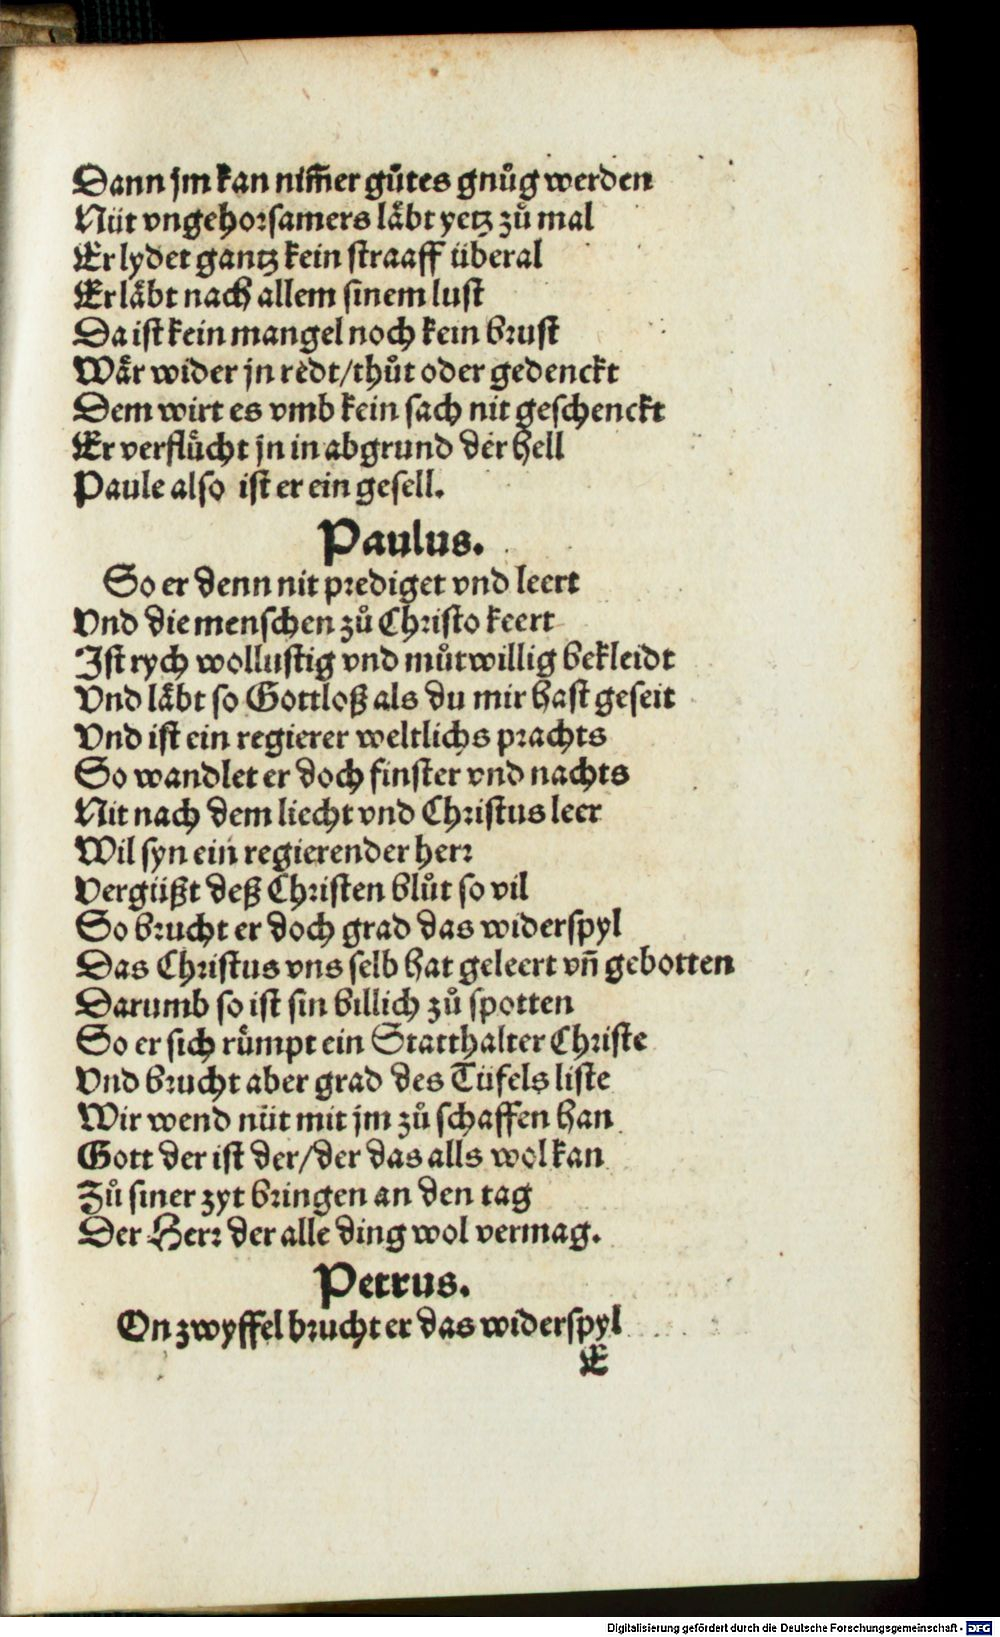 Dann jm kan nim̃er gůtes gnůg werden
Nüt vngehorsamers läbt yetz zů mal
Er lydet gantz kein straaff überal
Er läbt nach allem sinem lust
Da ist kein mangel noch kein brust
Wär wider jn redt/thůt oder gedenckt
Dem wirt es vmb kein sach nit geschenckt
Er verflůcht jn in abgrund der hell
Paule also ist er ein gesell.
Paulus.
So er denn nit prediget vnd leert
Vnd die menschen zů Christo keert
Ist rych wollustig vnd můtwillig bekleidt
Vnd läbt so Gottloß als du mir hast geseit
Vnd ist ein regierer weltlichs prachts
So wandlet er doch finster vnd nachts
Nit nach dem liecht vnd Christus leer
Wil syn ein regierender herr
Vergüßt deß Christen blůt so vil
So brucht er doch grad das widerspyl
Das Christus vns selb hat geleert vñ gebotten
Darumb so ist sin billich zů spotten
So er sich růmpt ein Statthalter Christe
Vnd brucht aber grad des Tüfels liste
Wir wend nüt mit jm zů schaffen han
Gott der ist der/der das alls wol kan
Zů siner zyt bringen an den tag
Der Herr der alle ding wol vermag.
Petrus.
On zwyffel brucht er das widerspyl
E
Digitalisierung gefördert durch die Deutsche Forschungsgemeinschaft - DFG